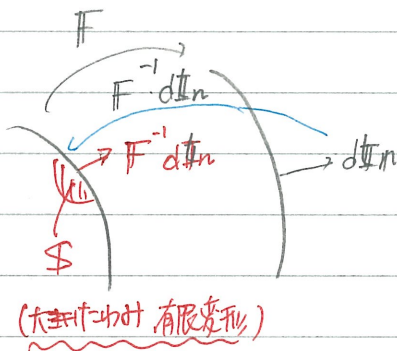 𝔽
𝔽⁻¹ d𝕋n
𝔽⁻¹ d𝕋n
d𝕋n
$
(大きなたわみ 有限変形)